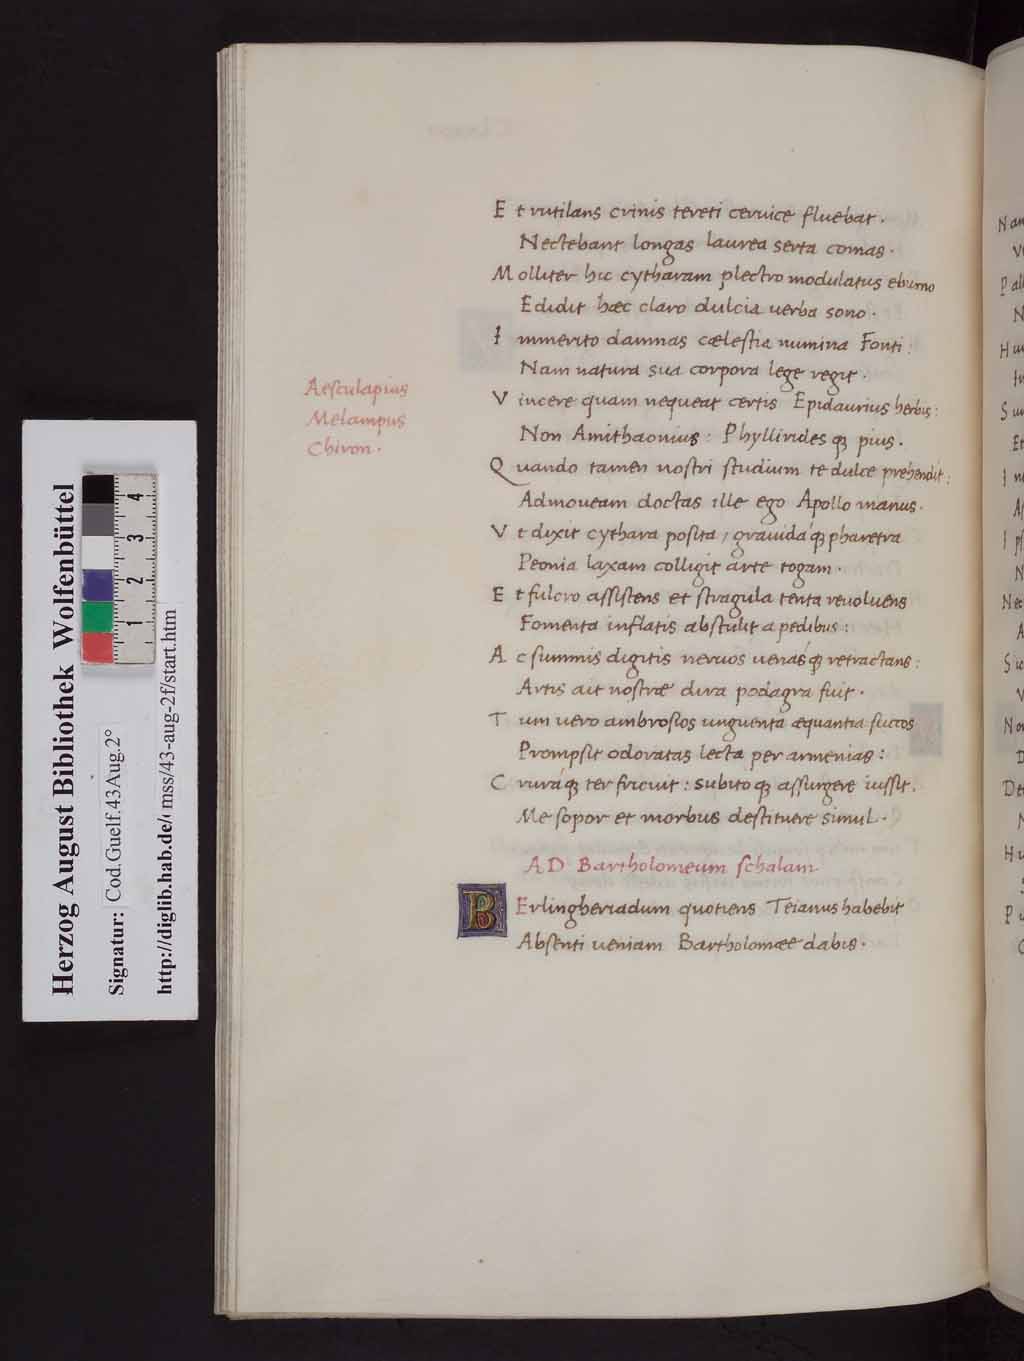 E t rutilans crinis tereti ceruice fluebat.
Nectebant longas laurea serta comas.
M olliter hic cytharam plectro modulatus eburno
Edidit hæc claro dulcia uerba sono.
I mmerito damnas cælestia numina Fonti:
Nam natura sua corpora lege regit.
Aesculapius
Melampus
Chiron.
V incere quam nequeat certis Epidaurius herbis:
Non Amithaonius: Phyllirides qꝫ pius.
Q uando tamen nostri studium te dulce prehendit:
Admoueam doctas ille ego Apollo manus.
V t dixit cythara posita, grauidáqꝫ pharetra
Peonia laxam colligit arte togam.
E t fulcro assistens et stragula tenta reuoluens
Fomenta inflatis abstulit a pedibus:
A c summis digitis neruos uenásqꝫ retractans:
Artis ait nostræ dira podagra fuit.
T um uero ambrosios unguenta æquantia succos
Prompsit odoratas lecta per armenias:
C ruráqꝫ ter fricuit: subitoqꝫ assurgere iussit.
Me sopor et morbus destituere simul.
AD Bartholomeum schalam
B Erlingheriadum quotiens Teianus habebit
Absenti ueniam Bartholomæe dabis.
Herzog August Bibliothek Wolfenbüttel
Signatur: Cod.Guelf.43Aug.2°
http://diglib.hab.de/ mss/43-aug-2f/start.htm
1 2 3 4